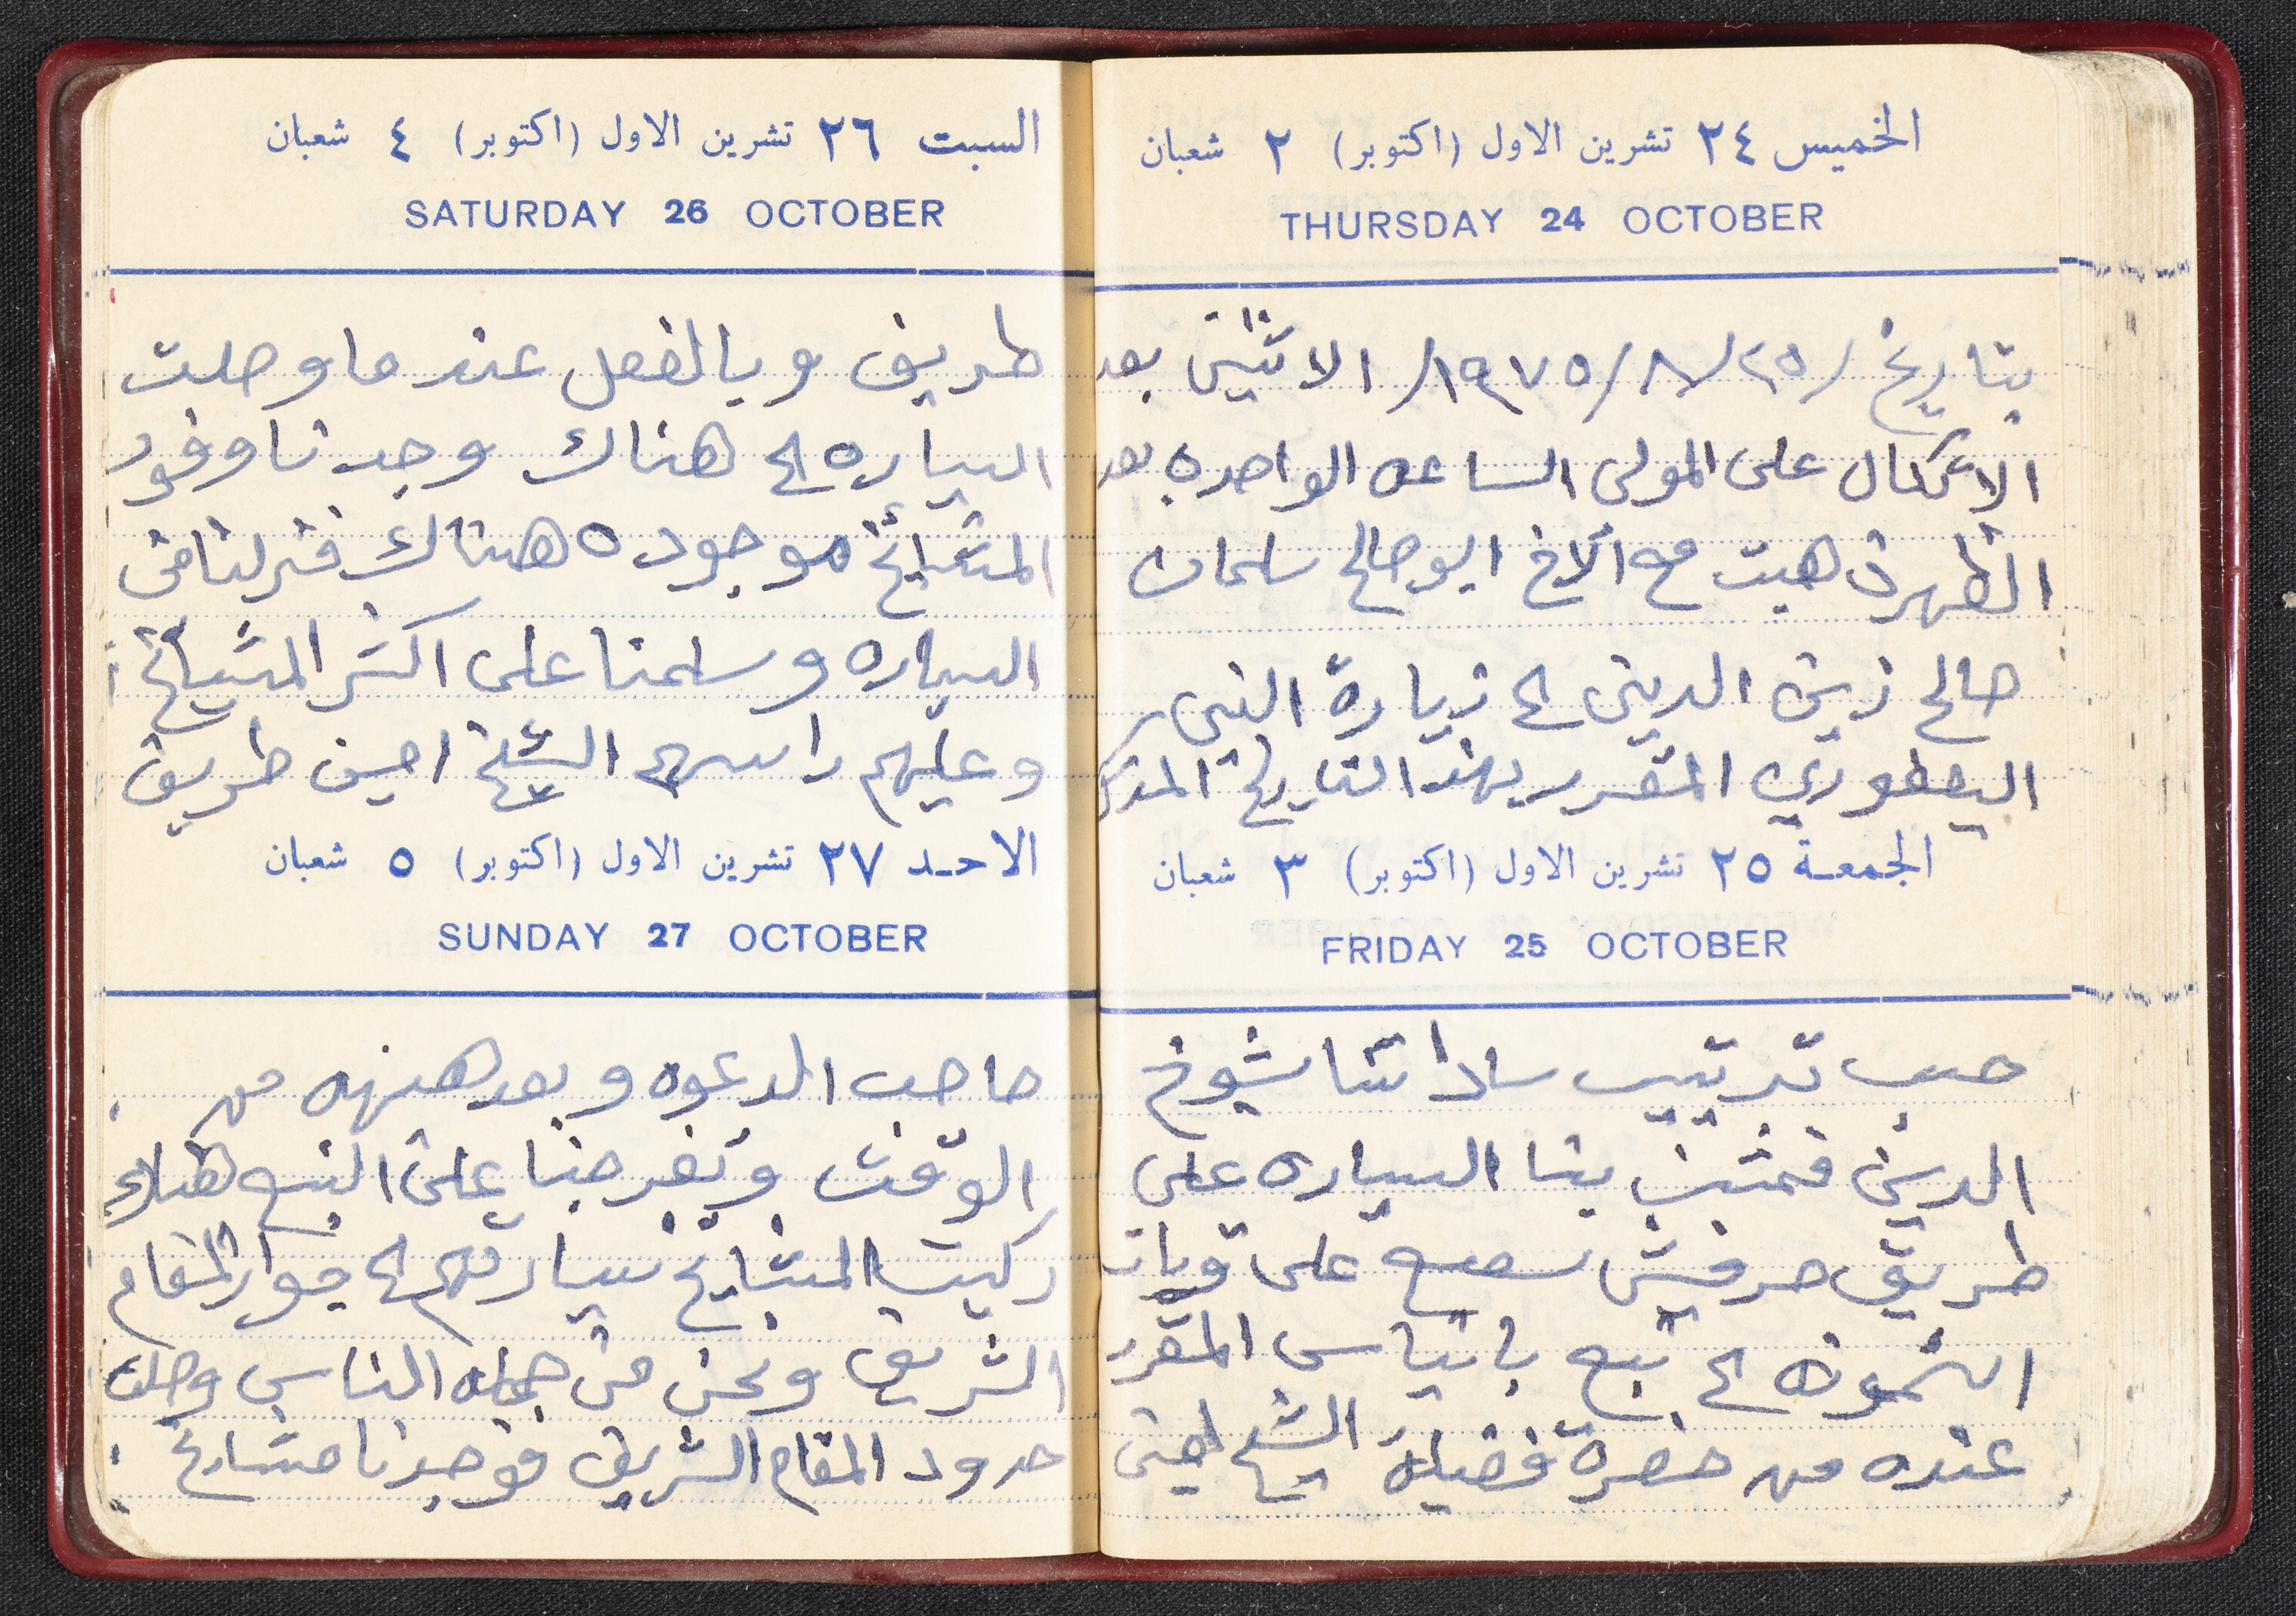 الخميس ٢٤ تشرين الاول (اكتوبر) ٢ شعبان
THURSDAY 24 OCTOBER
بتاريخ /٢٥/٨/١٩٧٥/ الاثنين بعد
الاتكال على المولى الساعه الواحده بعد
الظهر ذهبت مع الاخ ابو صالح سلمان
صالح زين الدين الى زيارة النبي
اليعفوري المقرر بهذ التاريخ المذكر
الجمعة ٢٥ تشرين الاول (اكتوبر) ٣ شعبان
FRIDAY 25 OCTOBER
حسب ترتيب ساداتنا شيوخ
الدين فمشت بنا السياره على
طريق حرفيش سعسع على
الى نبع بانياس المقرر
عنده من حضرة فضيلة الشيخ امين
السبت ٢٦ تشرين الاول (اكتوبر) ٤ شعبان
SATURDAY 26 OCTOBER
طريف وبالفعل عند ما وصلت
السياره الى هناك وجدنا وفود
المشايخ موجوده هناك فنزلنا من
السياره وسلمنا على اكثر المشيايخ
وعليهم راسهم الشيخ امين طريف
الاحد ٢٧ تشرين الاول (اكتوبر) ٥ شعبان
SUNDAY 27 OCTOBER
صاحب الدعوه وبعد هنيهه من
الوقت وتفرجنا على النبع
ركبت المشايخ سيارتهم الى جوار المقام
الشريف ونحن من جمله الناس وصلت
حدود المقام الشريف فوجدنا مشايخ